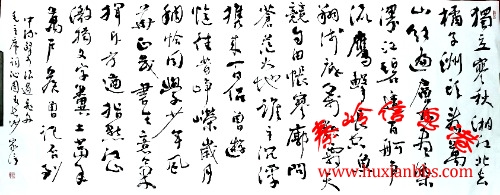 独立寒秋湘江北去
橘子洲头看万
山红遍层林尽染
漫江碧透百舸争
流鹰击长空鱼
翔浅底万类霜天
竞自由怅寥廓问
苍茫大地谁主沉浮
携来百侣曾游
忆往昔峥嵘岁月
稠恰同学少年风
华正茂书生意气
挥斥方遒指点江山
激扬文字粪土当年
万户侯曾记否到
中流击水浪遏飞舟
毛主席词沁园春长沙
www.huxianbbs.com